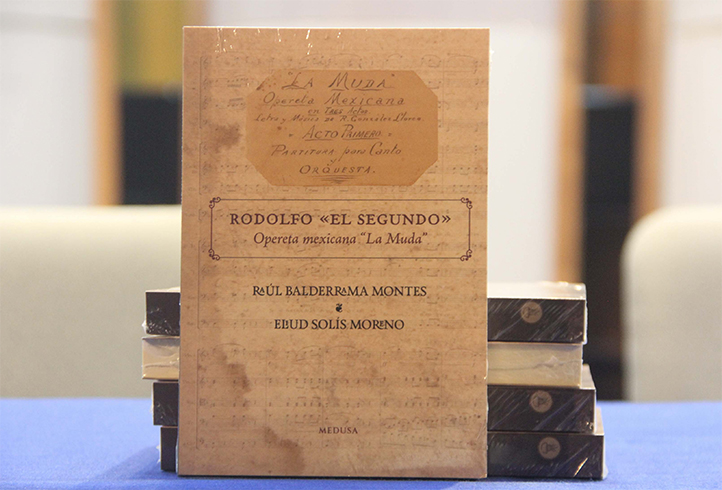 "LA MUDA"
Opereta Mexicana
en Tres Actos.
Letra y Música de R. González Llorca.
ACTO PRIMERO.
PARTITURA para Canto
y
ORQUESTA.
RODOLFO «EL SEGUNDO»
Opereta mexicana "La Muda"
RAÚL BALDERRAMA MONTES
ELIUD SOLÍS MORENO
MEDUSA